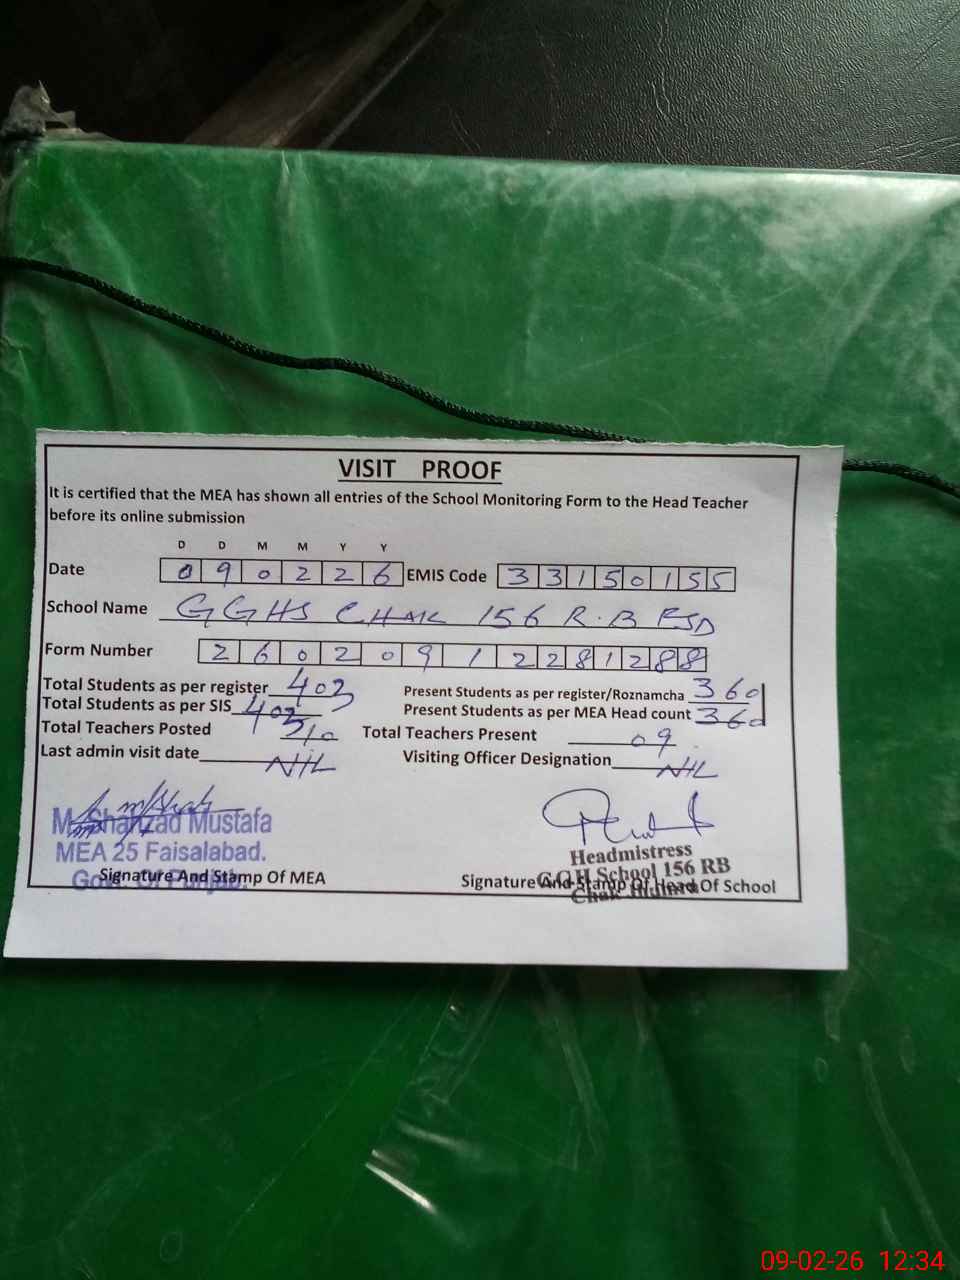 VISIT PROOF
It is certified that the MEA has shown all entries of the School Monitoring Form to the Head Teacher
before its online submission
D D M M Y Y
Date 0 9 0 2 2 6 EMIS Code 3 3 1 5 0 1 5 5
School Name GGHS CHAK 156 R.B FSD
Form Number 2 6 0 2 0 9 1 2 2 8 1 2 8 8
Total Students as per register 403 Present Students as per register/Roznamcha 360
Total Students as per SIS 403 Present Students as per MEA Head count 360
Total Teachers Posted 10 Total Teachers Present 09
Last admin visit date NIL Visiting Officer Designation NIL
M. Shahzad Mustafa
MEA 25 Faisalabad.
Govt. Of Punjab.
Signature And Stamp Of MEA
Headmistress
G.G.H School 156 RB
Chak Jhumra
Signature And Stamp Of Head Of School
09-02-26 12:34